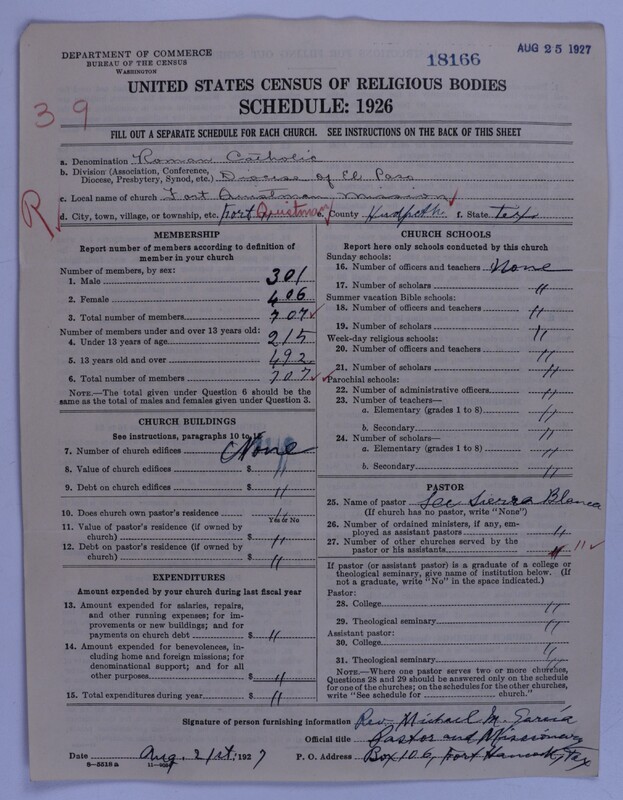 DEPARTMENT OF COMMERCE
BUREAU OF THE CENSUS
WASHINGTON
18166
AUG 25 1927
UNITED STATES CENSUS OF RELIGIOUS BODIES
SCHEDULE: 1926
39
FILL OUT A SEPARATE SCHEDULE FOR EACH CHURCH. SEE INSTRUCTIONS ON THE BACK OF THIS SHEET
a. Denomination Roman Catholic
b. Division (Association, Conference, Diocese, Presbytery, Synod, etc.) Diocese of El Paso
c. Local name of church Fort Quitman Mission
R
d. City, town, village, or township, etc. Fort Quitman e. County Hudpeth f. State Tex
MEMBERSHIP
Report number of members according to definition of
member in your church
Number of members, by sex:
1. Male 301
2. Female 406
3. Total number of members 707
Number of members under and over 13 years old:
4. Under 13 years of age 215
5. 13 years old and over 492
6. Total number of members 707
NOTE.—The total given under Question 6 should be
the same as the total of males and females given under Question 3.
CHURCH BUILDINGS
See instructions, paragraphs 10 to
7. Number of church edifices None
8. Value of church edifices $ "
9. Debt on church edifices $ "
10. Does church own pastor's residence "
Yes or No
11. Value of pastor's residence (if owned by
church) $ "
12. Debt on pastor's residence (if owned by
church) $ "
EXPENDITURES
Amount expended by your church during last fiscal year
13. Amount expended for salaries, repairs,
and other running expenses; for im-
provements or new buildings; and for
payments on church debt $ "
14. Amount expended for benevolences, in-
cluding home and foreign missions; for
denominational support; and for all
other purposes $ "
15. Total expenditures during year $ "
CHURCH SCHOOLS
Report here only schools conducted by this church
Sunday schools:
16. Number of officers and teachers None
17. Number of scholars "
Summer vacation Bible schools:
18. Number of officers and teachers "
19. Number of scholars "
Week-day religious schools:
20. Number of officers and teachers "
21. Number of scholars "
Parochial schools:
22. Number of administrative officers "
23. Number of teachers—
a. Elementary (grades 1 to 8) "
b. Secondary "
24. Number of scholars—
a. Elementary (grades 1 to 8) "
b. Secondary "
PASTOR
25. Name of pastor See Sierra Blanca
(If church has no pastor, write "None")
26. Number of ordained ministers, if any, em-
ployed as assistant pastors "
27. Number of other churches served by the
pastor or his assistants 11
If pastor (or assistant pastor) is a graduate of a college or
theological seminary, give name of institution below. (If
not a graduate, write "No" in the space indicated.)
Pastor:
28. College "
29. Theological seminary "
Assistant pastor:
30. College "
31. Theological seminary "
NOTE.—Where one pastor serves two or more churches,
Questions 28 and 29 should be answered only on the schedule
for one of the churches; on the schedules for the other churches,
write "See schedule for church."
Signature of person furnishing information Rev. Michael M. García
Official title Pastor and Missionary
Date Aug. 21st, 1927 P. O. Address Box 106, Fort Hancock, Tex
8—5518 a